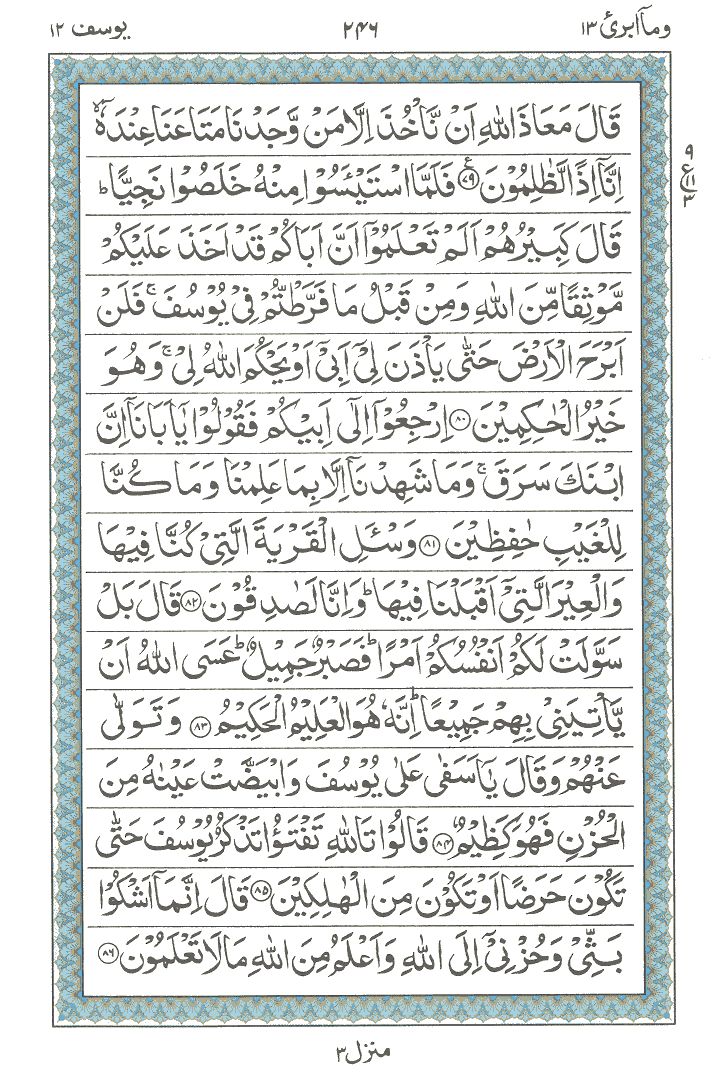 وماۤابرئ ١٣
٢٤٦
يوسف ١٢
قَالَ مَعَاذَ اللهِ اَنْ نَّاْخُذَ اِلَّا مَنْ وَّجَدْنَا مَتَاعَنَا عِنْدَهٗۤ ۙ
اِنَّاۤ اِذًا لَّظٰلِمُوْنَ ﴿٧٩﴾ ع فَلَمَّا اسْتَيْـَٔسُوْا مِنْهُ خَلَصُوْا نَجِيًّا ؕ
قَالَ كَبِيْرُهُمْ اَلَمْ تَعْلَمُوْۤا اَنَّ اَبَاكُمْ قَدْ اَخَذَ عَلَيْكُمْ
مَّوْثِقًا مِّنَ اللهِ وَمِنْ قَبْلُ مَا فَرَّطْتُّمْ فِيْ يُوْسُفَ ۚ فَلَنْ
اَبْرَحَ الْاَرْضَ حَتّٰى يَاْذَنَ لِيْۤ اَبِيْۤ اَوْ يَحْكُمَ اللهُ لِيْ ۚ وَهُوَ
خَيْرُ الْحٰكِمِيْنَ ﴿٨٠﴾ اِرْجِعُوْۤا اِلٰۤى اَبِيْكُمْ فَقُوْلُوْا يٰۤاَبَانَاۤ اِنَّ
ابْنَكَ سَرَقَ ۚ وَمَا شَهِدْنَاۤ اِلَّا بِمَا عَلِمْنَا وَمَا كُنَّا
لِلْغَيْبِ حٰفِظِيْنَ ﴿٨١﴾ وَسْـَٔلِ الْقَرْيَةَ الَّتِيْ كُنَّا فِيْهَا
وَالْعِيْرَ الَّتِيْۤ اَقْبَلْنَا فِيْهَا ؕ وَاِنَّا لَصٰدِقُوْنَ ﴿٨٢﴾ قَالَ بَلْ
سَوَّلَتْ لَكُمْ اَنْفُسُكُمْ اَمْرًا ؕ فَصَبْرٌ جَمِيْلٌ ؕ عَسَى اللهُ اَنْ
يَّاْتِيَنِيْ بِهِمْ جَمِيْعًا ؕ اِنَّهٗ هُوَ الْعَلِيْمُ الْحَكِيْمُ ﴿٨٣﴾ وَتَوَلّٰى
عَنْهُمْ وَقَالَ يٰۤاَسَفٰى عَلٰى يُوْسُفَ وَابْيَضَّتْ عَيْنٰهُ مِنَ
الْحُزْنِ فَهُوَ كَظِيْمٌ ﴿٨٤﴾ قَالُوْا تَاللهِ تَفْتَؤُا تَذْكُرُ يُوْسُفَ حَتّٰى
تَكُوْنَ حَرَضًا اَوْ تَكُوْنَ مِنَ الْهٰلِكِيْنَ ﴿٨٥﴾ قَالَ اِنَّمَاۤ اَشْكُوْا
بَثِّيْ وَحُزْنِيْۤ اِلَى اللهِ وَاَعْلَمُ مِنَ اللهِ مَا لَا تَعْلَمُوْنَ ﴿٨٦﴾
٩
ع ١١
٣
منزل ٣